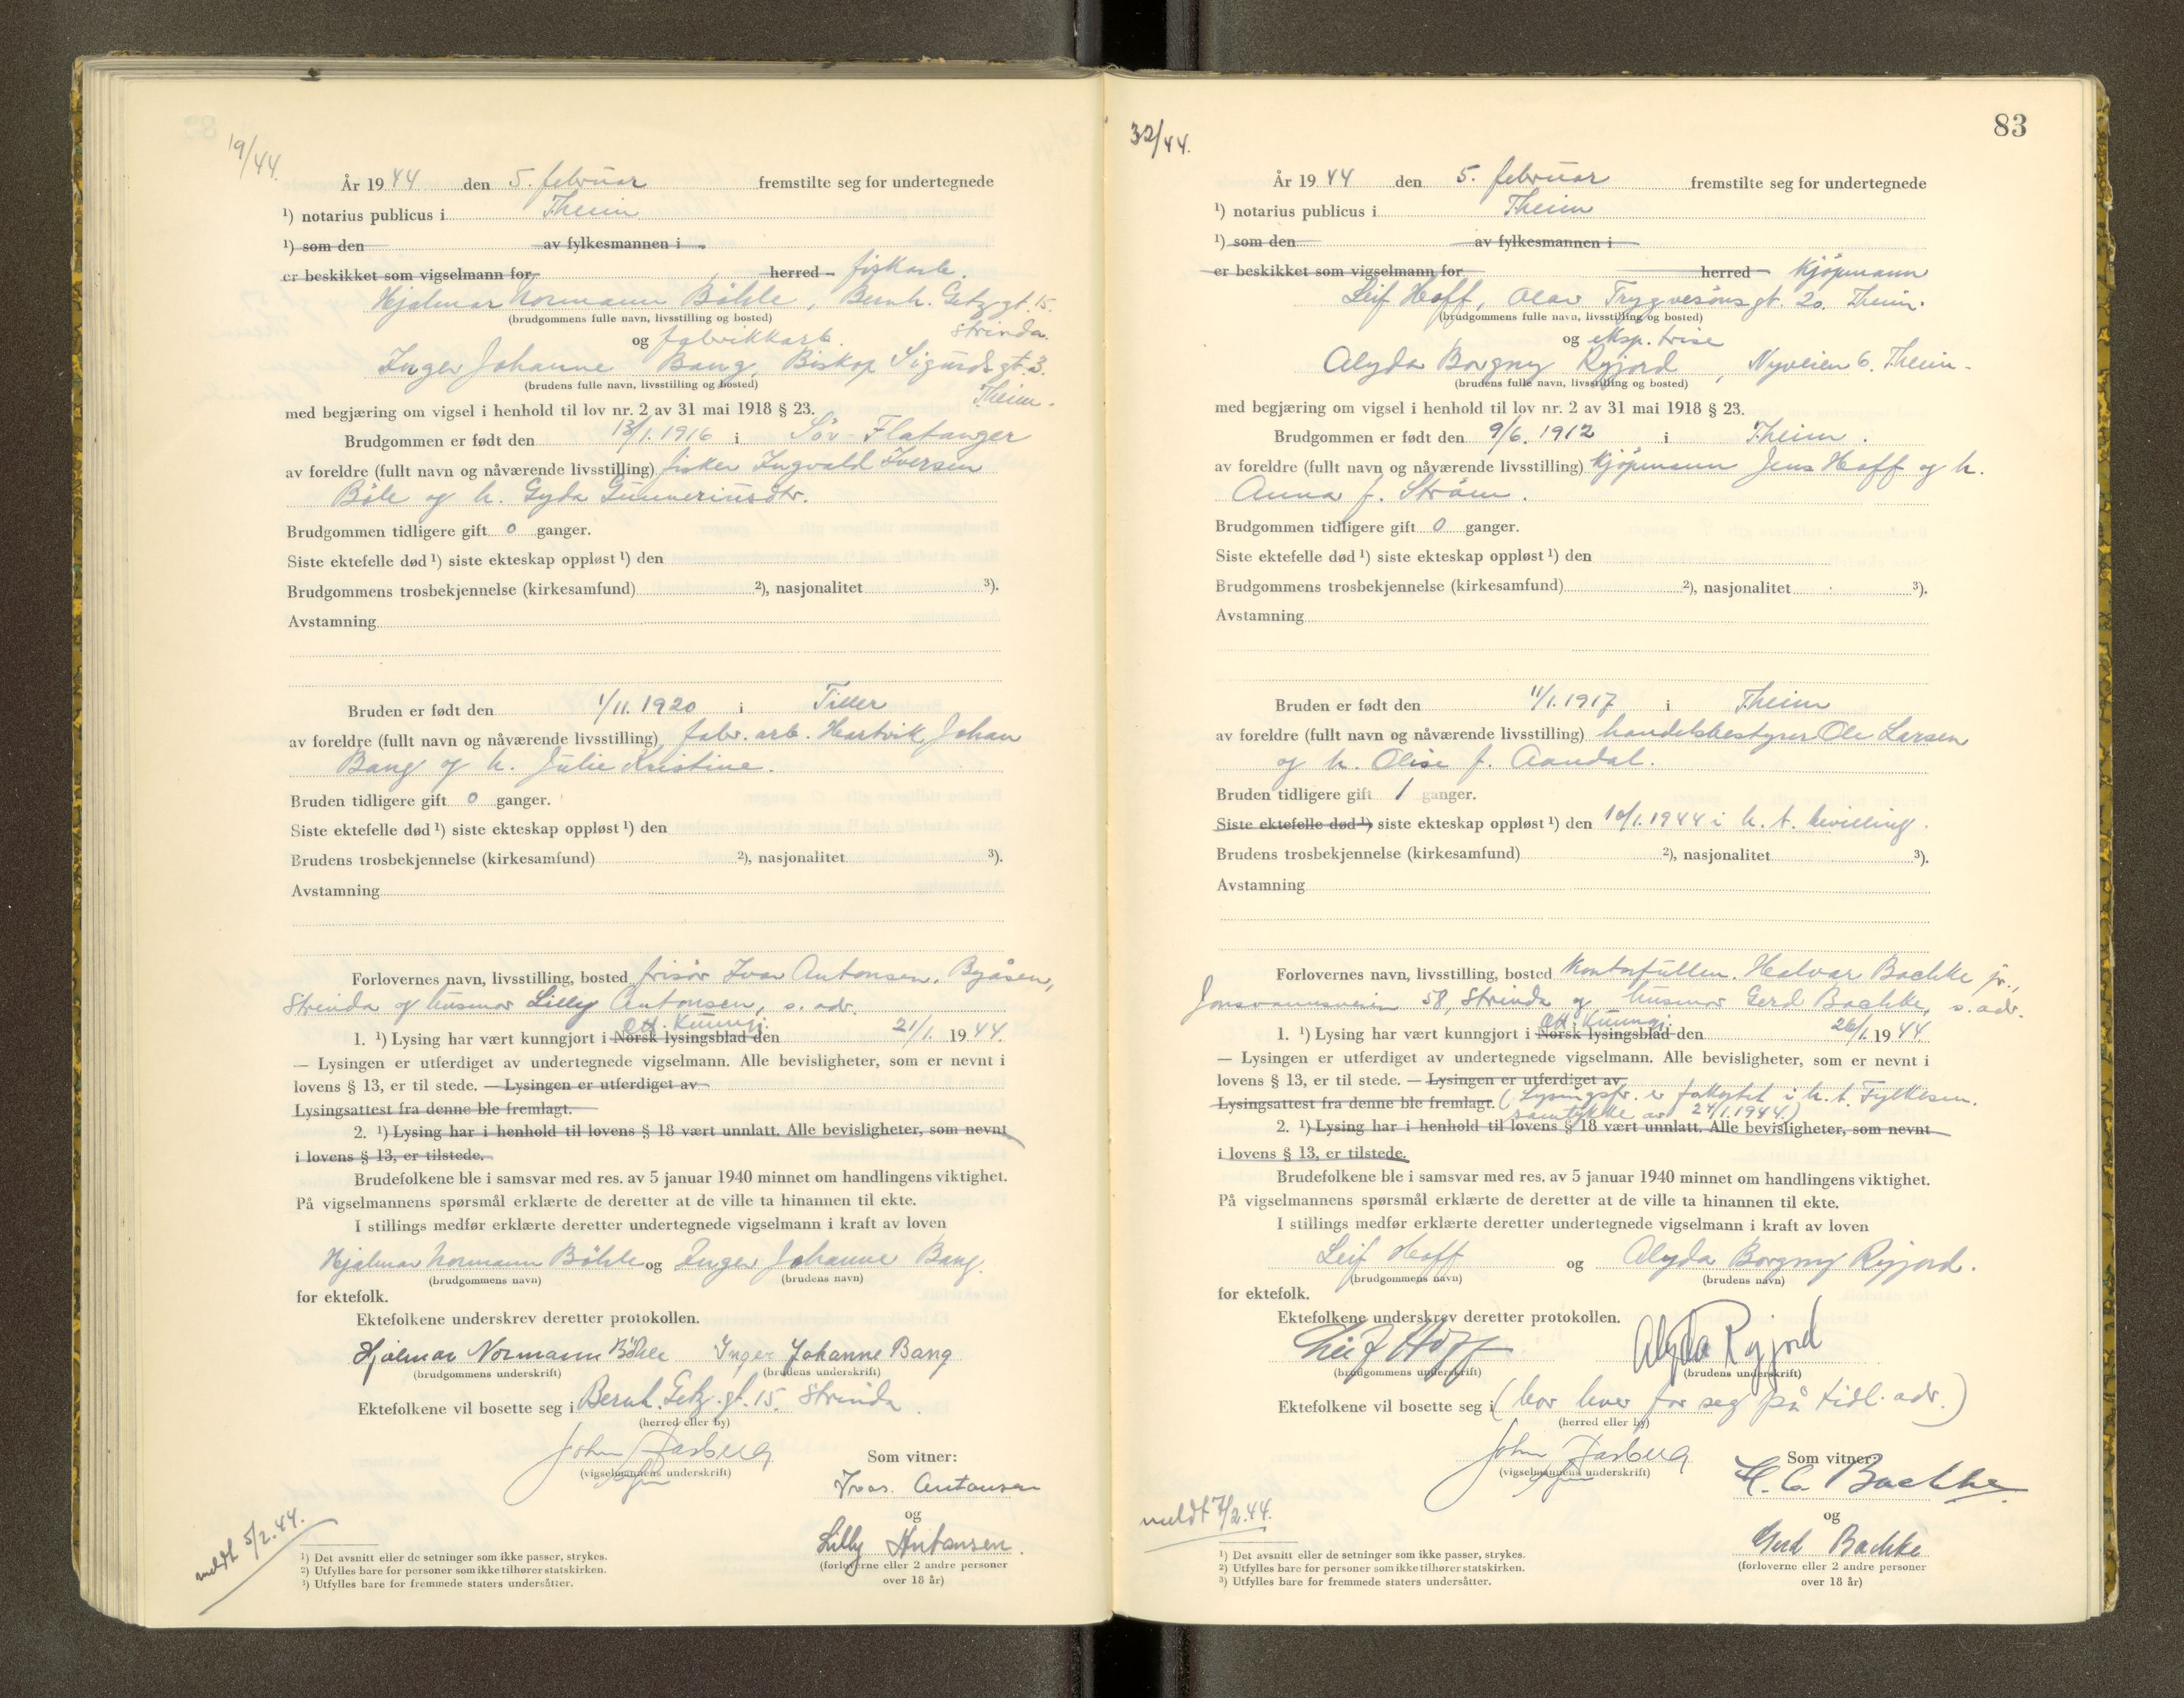 19/44.
År 1944 den 5. februar fremstilte seg for undertegnede
¹) notarius publicus i Theim
¹) som den av fylkesmannen i
er beskikket som vigselmann for, herred – fiskarb.
Hjalmar Normann Böhle, Bernh. Getz gt. 15.
(brudgommens fulle navn, livsstilling og bosted)
Strinda.
og fabrikkarb.
Inger Johanne Bang, Biskop Sigurds gt. 3.
(brudens fulle navn, livsstilling og bosted)
Theim.
med begjæring om vigsel i henhold til lov nr. 2 av 31 mai 1918 § 23.
Brudgommen er født den 13/1. 1916 i Sör-Flatanger
av foreldre (fullt navn og nåværende livsstilling) fisker Ingvald Iversen
Böle og h. Gyda Gunneriusdtr.
Brudgommen tidligere gift 0 ganger.
Siste ektefelle død ¹) siste ekteskap oppløst ¹) den
Brudgommens trosbekjennelse (kirkesamfund) ²), nasjonalitet ³).
Avstamning
Bruden er født den 1/11. 1920 i Tiller
av foreldre (fullt navn og nåværende livsstilling) fabr. arb. Hartvik Johan
Bang og h. Julie Kristine.
Bruden tidligere gift 0 ganger.
Siste ektefelle død ¹) siste ekteskap oppløst ¹) den
Brudens trosbekjennelse (kirkesamfund) ²), nasjonalitet ³).
Avstamning
Forlovernes navn, livsstilling, bosted frisör Ivar Antonsen, Byåsen,
Strinda og husmor Lilly Antonsen, s. adr.
Off. Kunngj.
1. ¹) Lysing har vært kunngjort i Norsk lysingsblad den 21/1. 1944.
— Lysingen er utferdiget av undertegnede vigselmann. Alle bevisligheter, som er nevnt i
lovens § 13, er til stede. — Lysingen er utferdiget av
Lysingsattest fra denne ble fremlagt.
2. ¹) Lysing har i henhold til lovens § 18 vært unnlatt. Alle bevisligheter, som nevnt
i lovens § 13, er tilstede.
Brudefolkene ble i samsvar med res. av 5 januar 1940 minnet om handlingens viktighet.
På vigselmannens spørsmål erklærte de deretter at de ville ta hinannen til ekte.
I stillings medfør erklærte deretter undertegnede vigselmann i kraft av loven
Hjalmar Normann Böhle og Inger Johanne Bang.
(brudgommens navn) (brudens navn)
for ektefolk.
Ektefolkene underskrev deretter protokollen.
Hjalmar Normann Böhle Inger Johanne Bang
(brudgommens underskrift) (brudens underskrift)
Ektefolkene vil bosette seg i Bernh. Getz. gt. 15. Strinda.
(herred eller by)
John
(vigselmannens underskrift)
Som vitner:
Ivar. Antonsen
og
Lilly Antonsen.
(forloverne eller 2 andre personer
over 18 år)
meldt 5/2. 44.
¹) Det avsnitt eller de setninger som ikke passer, strykes.
²) Utfylles bare for personer som ikke tilhører statskirken.
³) Utfylles bare for fremmede staters undersåtter.
83
32/44.
År 1944 den 5. februar fremstilte seg for undertegnede
¹) notarius publicus i Theim
¹) som den av fylkesmannen i
er beskikket som vigselmann for herred – Kjöpmann
Leif Hoff, Olav Trygvesöns gt. 20. Theim.
(brudgommens fulle navn, livsstilling og bosted)
og eksp. trise
Alyda Borgny Ryjord, Nyveien 6. Theim.
(brudens fulle navn, livsstilling og bosted)
med begjæring om vigsel i henhold til lov nr. 2 av 31 mai 1918 § 23.
Brudgommen er født den 9/6. 1912 i Theim.
av foreldre (fullt navn og nåværende livsstilling) Kjöpmann Jens Hoff og h.
Anna f. Ström.
Brudgommen tidligere gift 0 ganger.
Siste ektefelle død ¹) siste ekteskap oppløst ¹) den
Brudgommens trosbekjennelse (kirkesamfund) ²), nasjonalitet ³).
Avstamning
Bruden er født den 11/1. 1917 i Theim
av foreldre (fullt navn og nåværende livsstilling) handelsbestyrer Ole Larsen
og h. Olise f. Aandal.
Bruden tidligere gift 1 ganger.
Siste ektefelle død ¹) siste ekteskap oppløst ¹) den 10/1. 1944 i h. t. bevilling.
Brudens trosbekjennelse (kirkesamfund) ²), nasjonalitet ³).
Avstamning
Forlovernes navn, livsstilling, bosted Kontorfullm. Halvar Bachke jr.,
Jonsvannsveien 58, Strinda og husmor Gerd Bachke, s. adr.
Off. Kunngj.
1. ¹) Lysing har vært kunngjort i Norsk lysingsblad den 26/1. 1944
— Lysingen er utferdiget av undertegnede vigselmann. Alle bevisligheter, som er nevnt i
lovens § 13, er til stede. — Lysingen er utferdiget av
Lysingsattest fra denne ble fremlagt. (Lysingsfr. er forkortet i h. t. Fylkesm.
samtykke av 24/1. 1944.)
2. ¹) Lysing har i henhold til lovens § 18 vært unnlatt. Alle bevisligheter, som nevnt
i lovens § 13, er tilstede.
Brudefolkene ble i samsvar med res. av 5 januar 1940 minnet om handlingens viktighet.
På vigselmannens spørsmål erklærte de deretter at de ville ta hinannen til ekte.
I stillings medfør erklærte deretter undertegnede vigselmann i kraft av loven
Leif Hoff og Alyda Borgny Ryjord.
(brudgommens navn) (brudens navn)
for ektefolk.
Ektefolkene underskrev deretter protokollen.
Leif Hoff Alyda Ryjord
(brudgommens underskrift) (brudens underskrift)
Ektefolkene vil bosette seg i (bor hver for seg på tidl. adr.)
(herred eller by)
John
(vigselmannens underskrift)
Som vitner:
H. C. Bachke
og
Gerd Bachke
(forloverne eller 2 andre personer
over 18 år)
meldt 7/2. 44.
¹) Det avsnitt eller de setninger som ikke passer, strykes.
²) Utfylles bare for personer som ikke tilhører statskirken.
³) Utfylles bare for fremmede staters undersåtter.